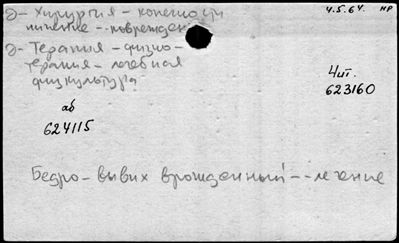 Э- Хирургия - конечности
4.5.64. НР
нижние - поврежден
Э- Терапия - физио-
терапия - лечебная
физкультура
Чит.
623160
аб
624115
Бедро - вывих врожденный - - лечение